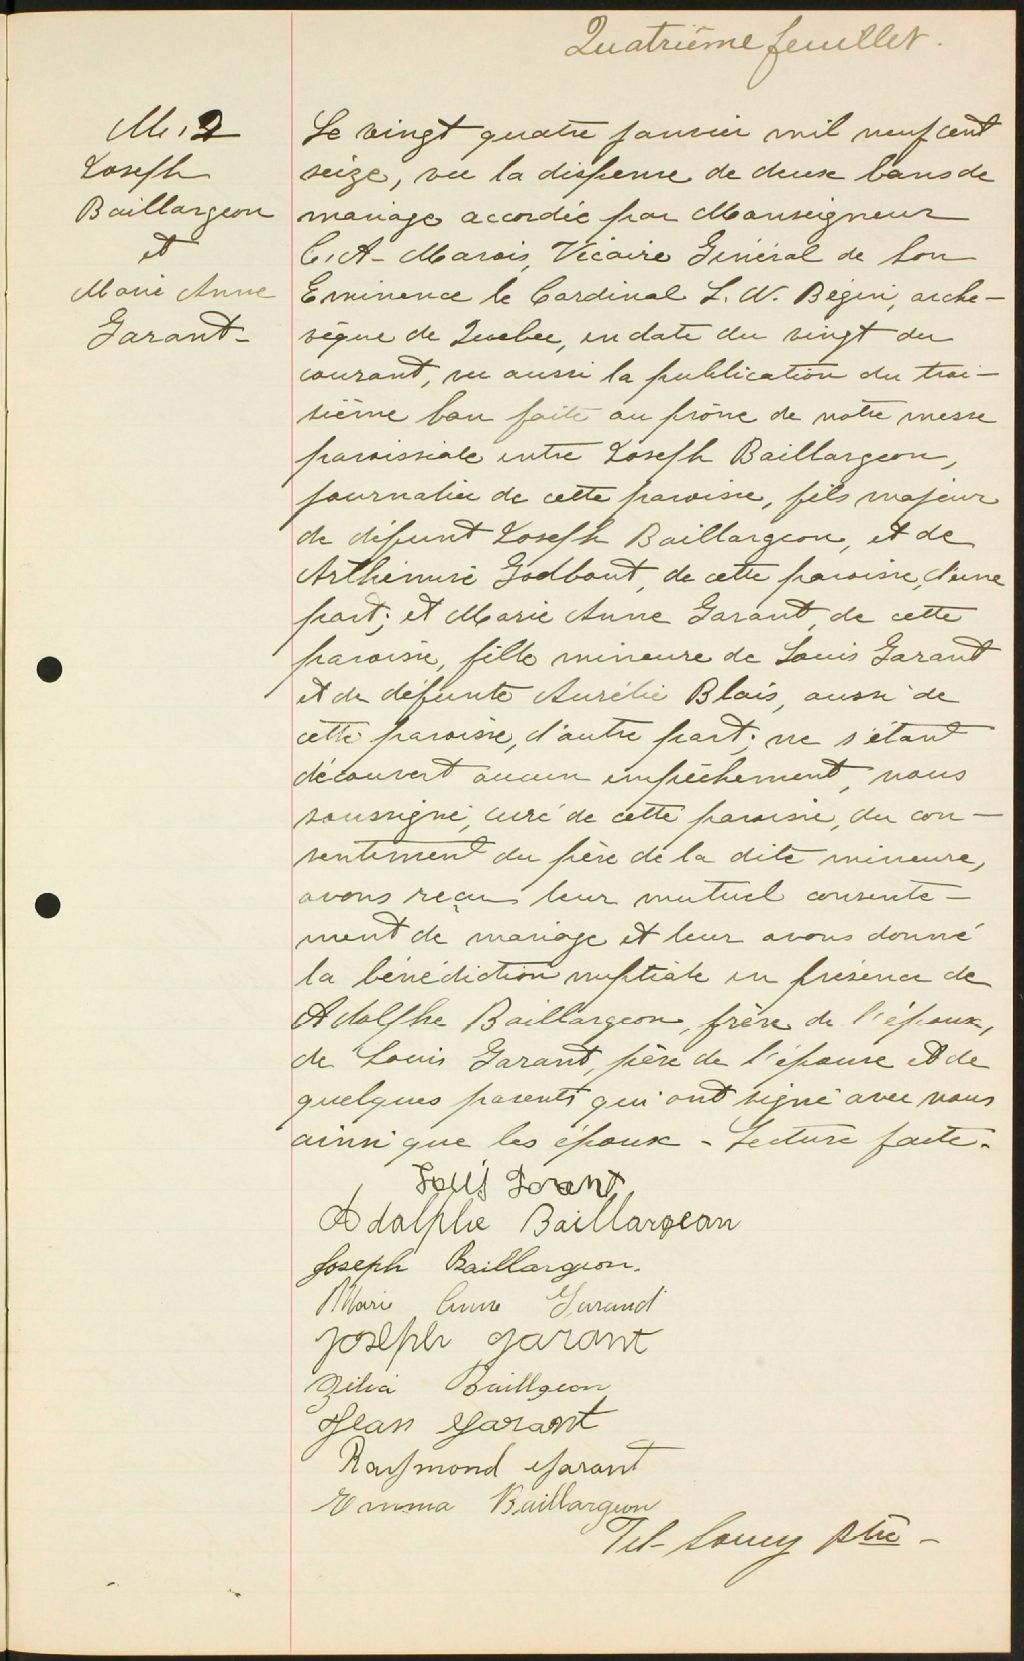 Quatrième feuillet.
M. 2
Joseph
Baillargeon
et
Marie Anne
Garant-
Le vingt quatre janvier mil neuf cent
seize, vu la dispense de deux bans de
mariage accordée par Monseigneur
C. A- Marois, Vicaire Général de Son
Eminence le Cardinal L. N. Bégin, arche-
vêque de Québec, en date du vingt du
courant, vu aussi la publication du troi-
sième ban faite au prône de notre messe
paroissiale entre Joseph Baillargeon,
journalier de cette paroisse, fils majeur
de défunt Joseph Baillargeon, et de
Arthémise Godbout, de cette paroisse, d'une
part; et Marie Anne Garant, de cette
paroisse, fille mineure de Louis Garant
et de défunte Aurélie Blais, aussi de
cette paroisse, d'autre part; ne s'étant
découvert aucun empêchement, nous
soussigné, curé de cette paroisse, du con-
sentiment du père de la dite mineure,
avons reçu leur mutuel consente-
ment de mariage et leur avons donné
la bénédiction nuptiale en présence de
Adolphe Baillargeon, frère de l'époux,
de Louis Garant, père de l'épouse et de
quelques parents qui ont signé avec nous
ainsi que les époux - Lecture faite.
Garant
Adolphe Baillargeon
Joseph Baillargeon.
Marie Anne Garand
Joseph garant
Zélia Baillgeon
Jean Garant
Raymond Garant
Emma Baillargeon
Tél- Soucy Ptre -